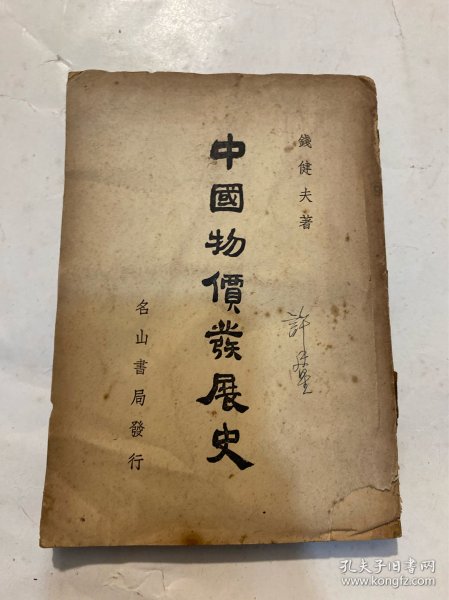 錢健夫著
中國物價發展史
名山書局發行
孔夫子旧书网
www.kongfz.com